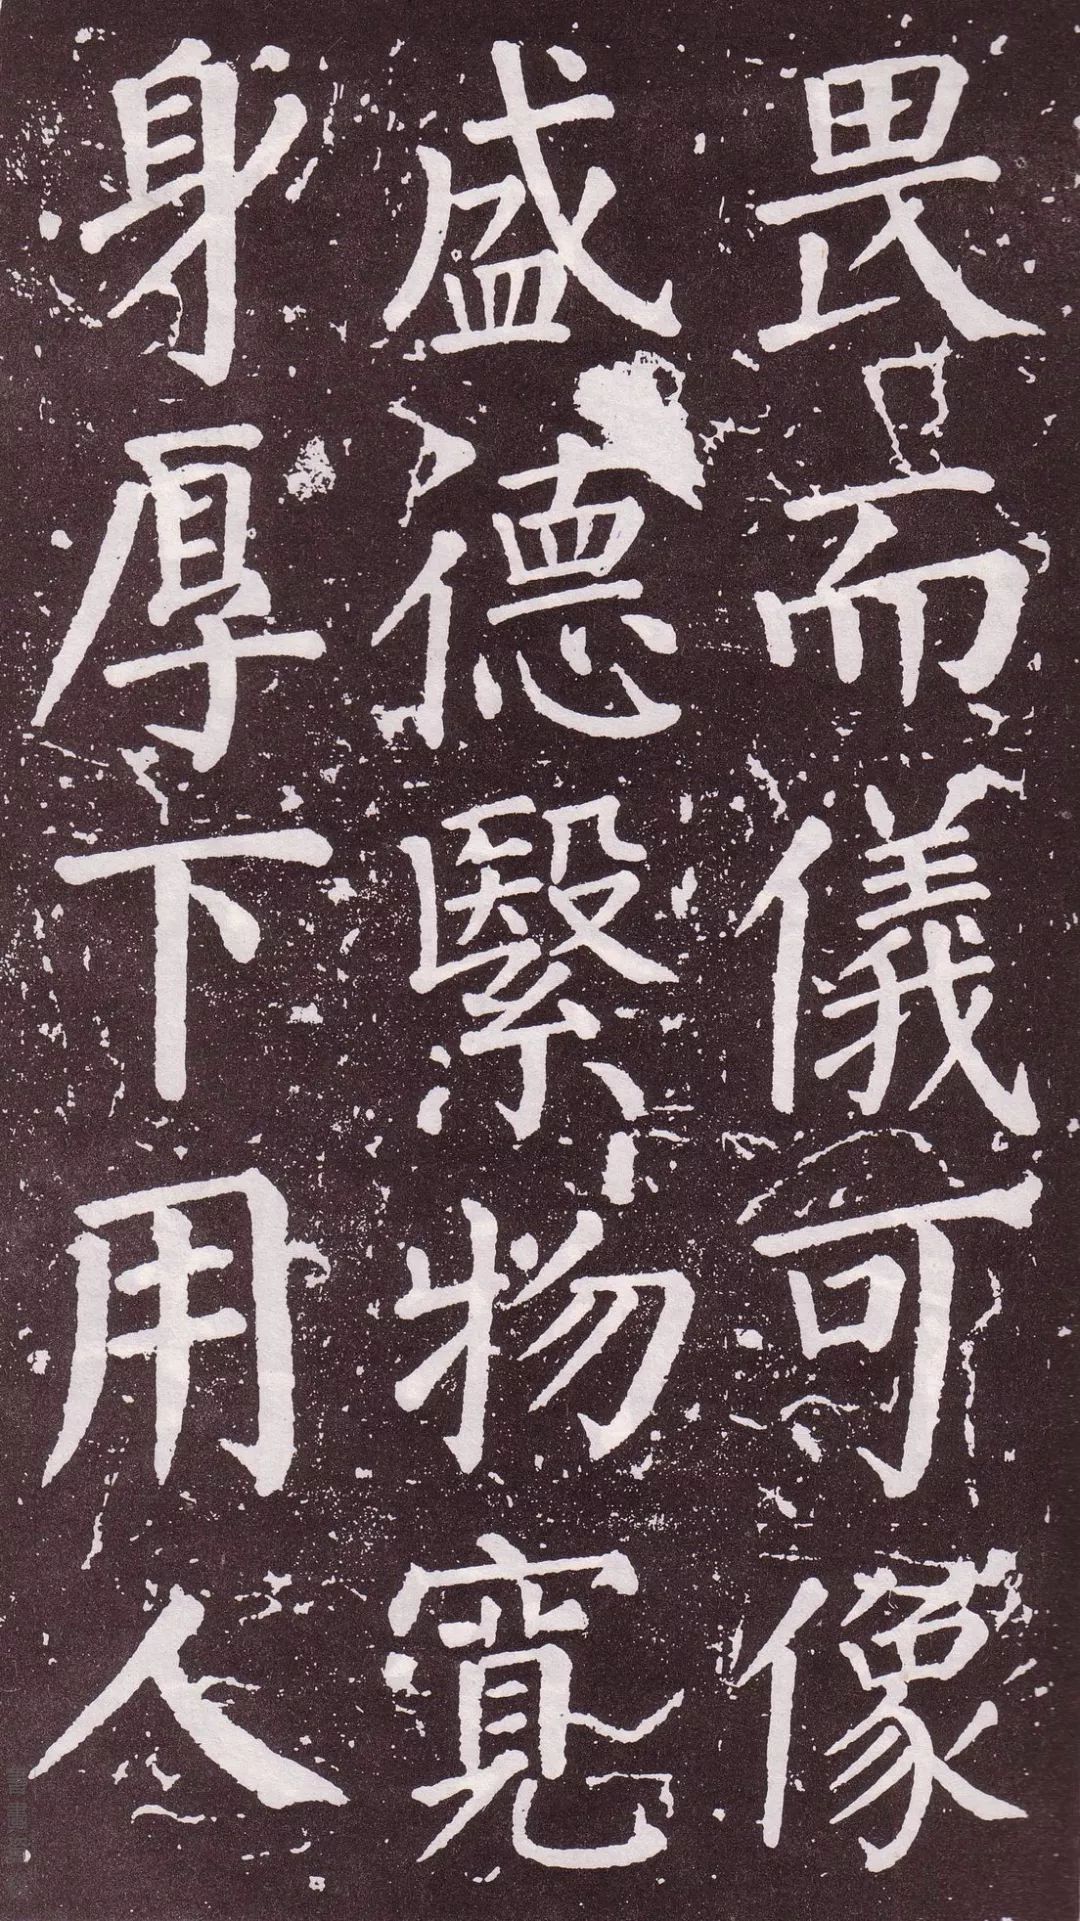 畏而儀可像
盛德繄物寬
身厚下用人